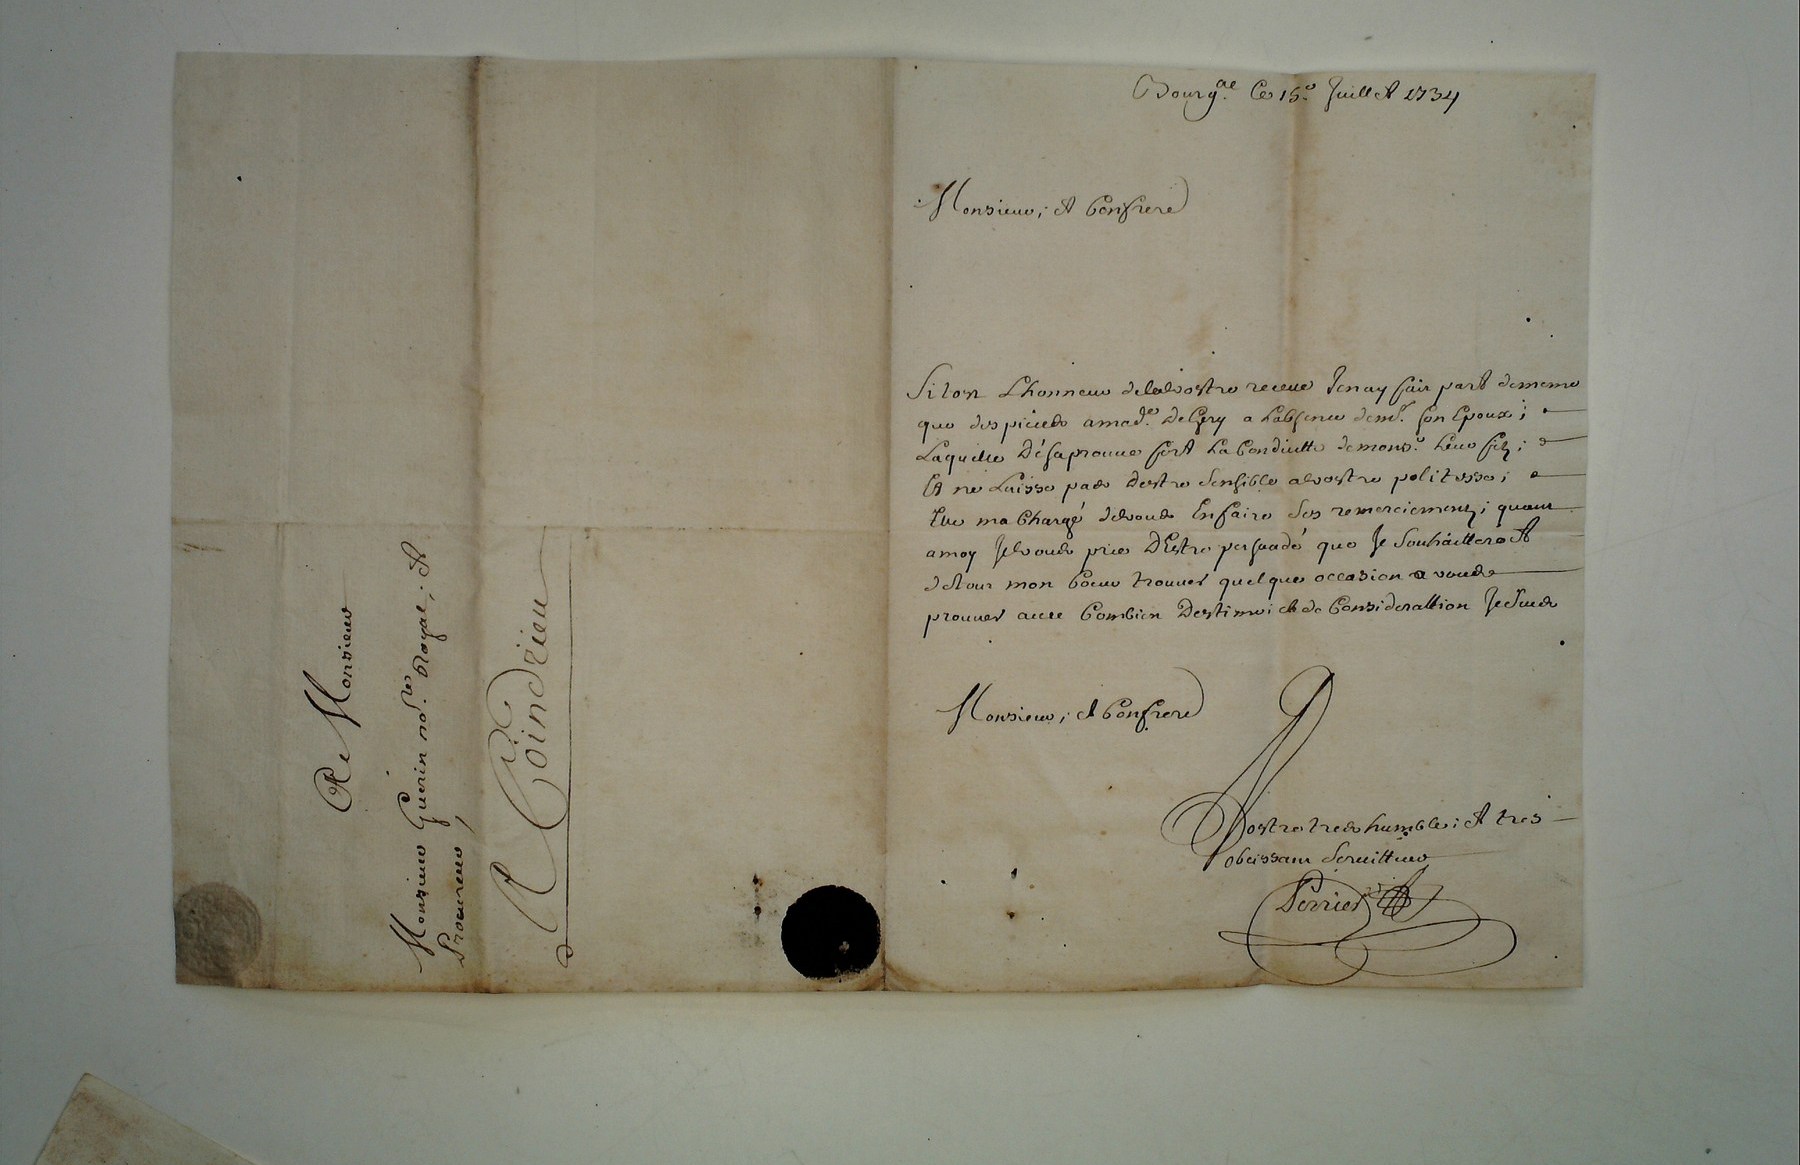 Bourg.al Ce 15e Juillet 1734
Monsieur; et Confrere
Sitost L'honneur delavostre receue Jenay fair part dememe
que des pieces a mad.e DeGery a Labsence dem.r son Epoux;
Laquelle Désaprouve fort La Conduitte demons.r leur filz;
Et ne Laisse pas D'estre Sensible avostre politesse;
Elle ma Chargé devous En faire Ses remerciemenz; quant
amoy Jevous prie D'Estre persuadé que Je Souhaitterois Et
detour mon Coeur trouver quelque occasion a vous
prouver avec Combien Destime et de Considerattion Je Suis
Monsieur; et Confrere
Vostre tres humble; et tres
obeissant Serviteur
Perrier
A Monsieur
Monsieur Guerin no.re Royal; et
Procureur,
A Coindrieu